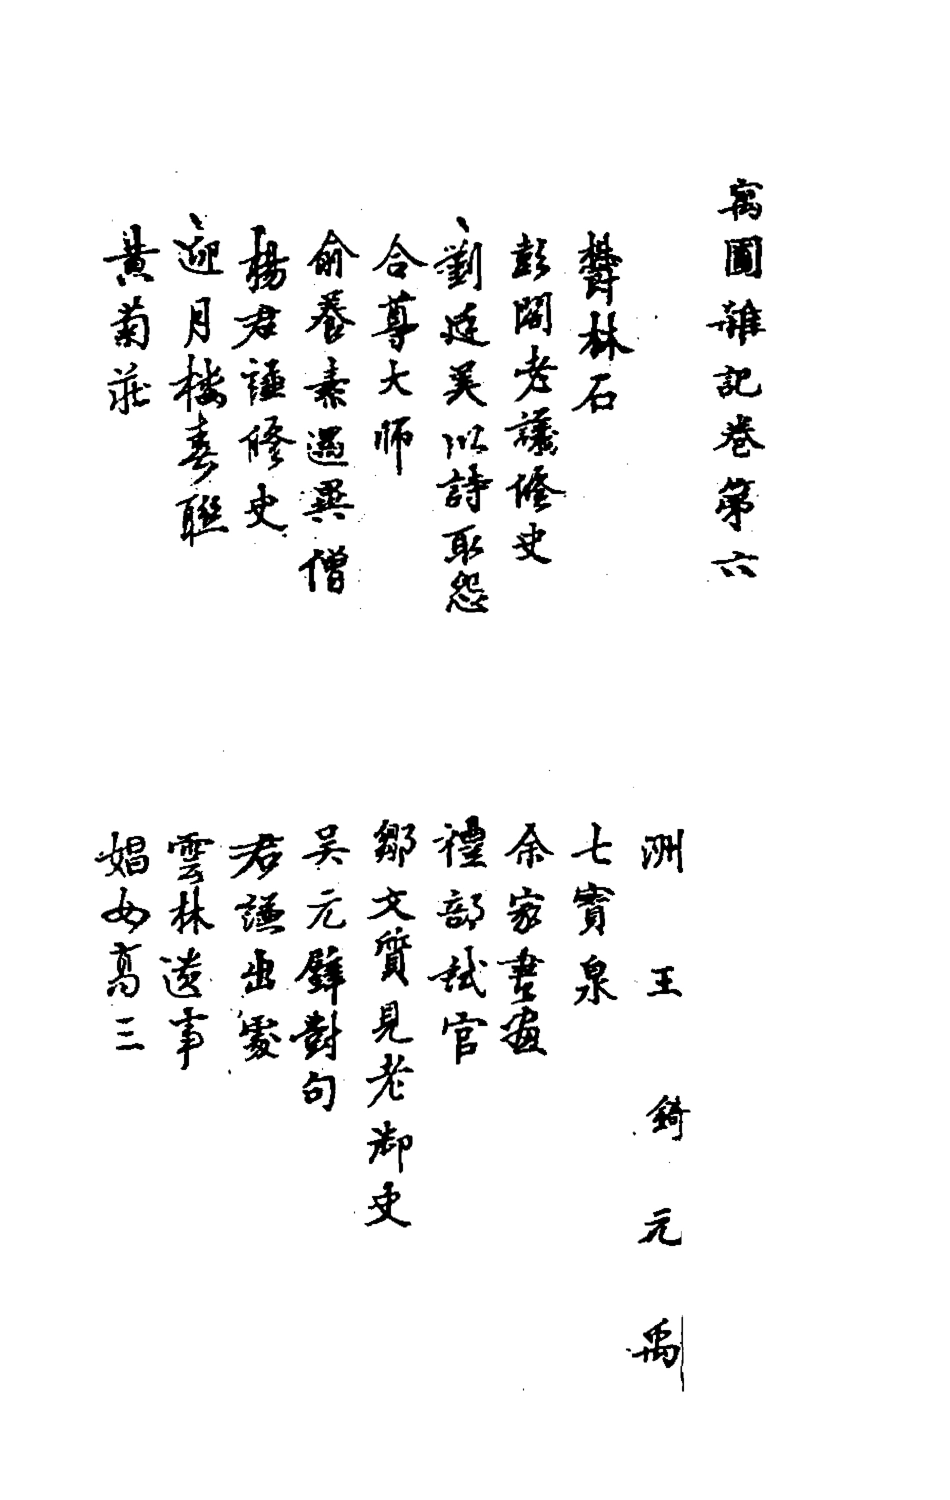 寓圃雜記卷第六
洲 王 錡 元 禹
欝林石 七寳泉
彭閣老議修史 余家書畫
劉廷美以詩取怨 禮部試官
合尊大師 鄒文質見老御史
俞養素遇異僧 吴元璧對句
楊君謙修史 君謙出處
迎月楼春聯 雲林遺事
黄菊莊 娼女高三